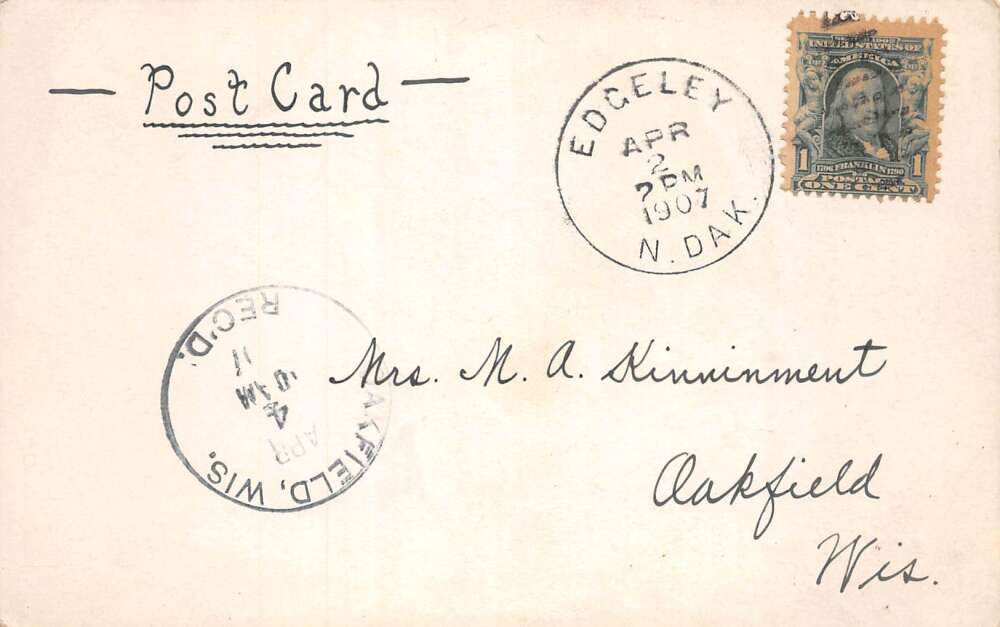 Post Card
EDGELEY
APR
2
7 PM
1907
N. DAK.
SERIES 1902
UNITED STATES OF
AMERICA
1
1706 FRANKLIN 1790
POSTAGE
ONE CENT
REC'D.
APR
4
OAKFIELD, WIS.
Mrs. M. A. Kinninment
Oakfield
Wis.